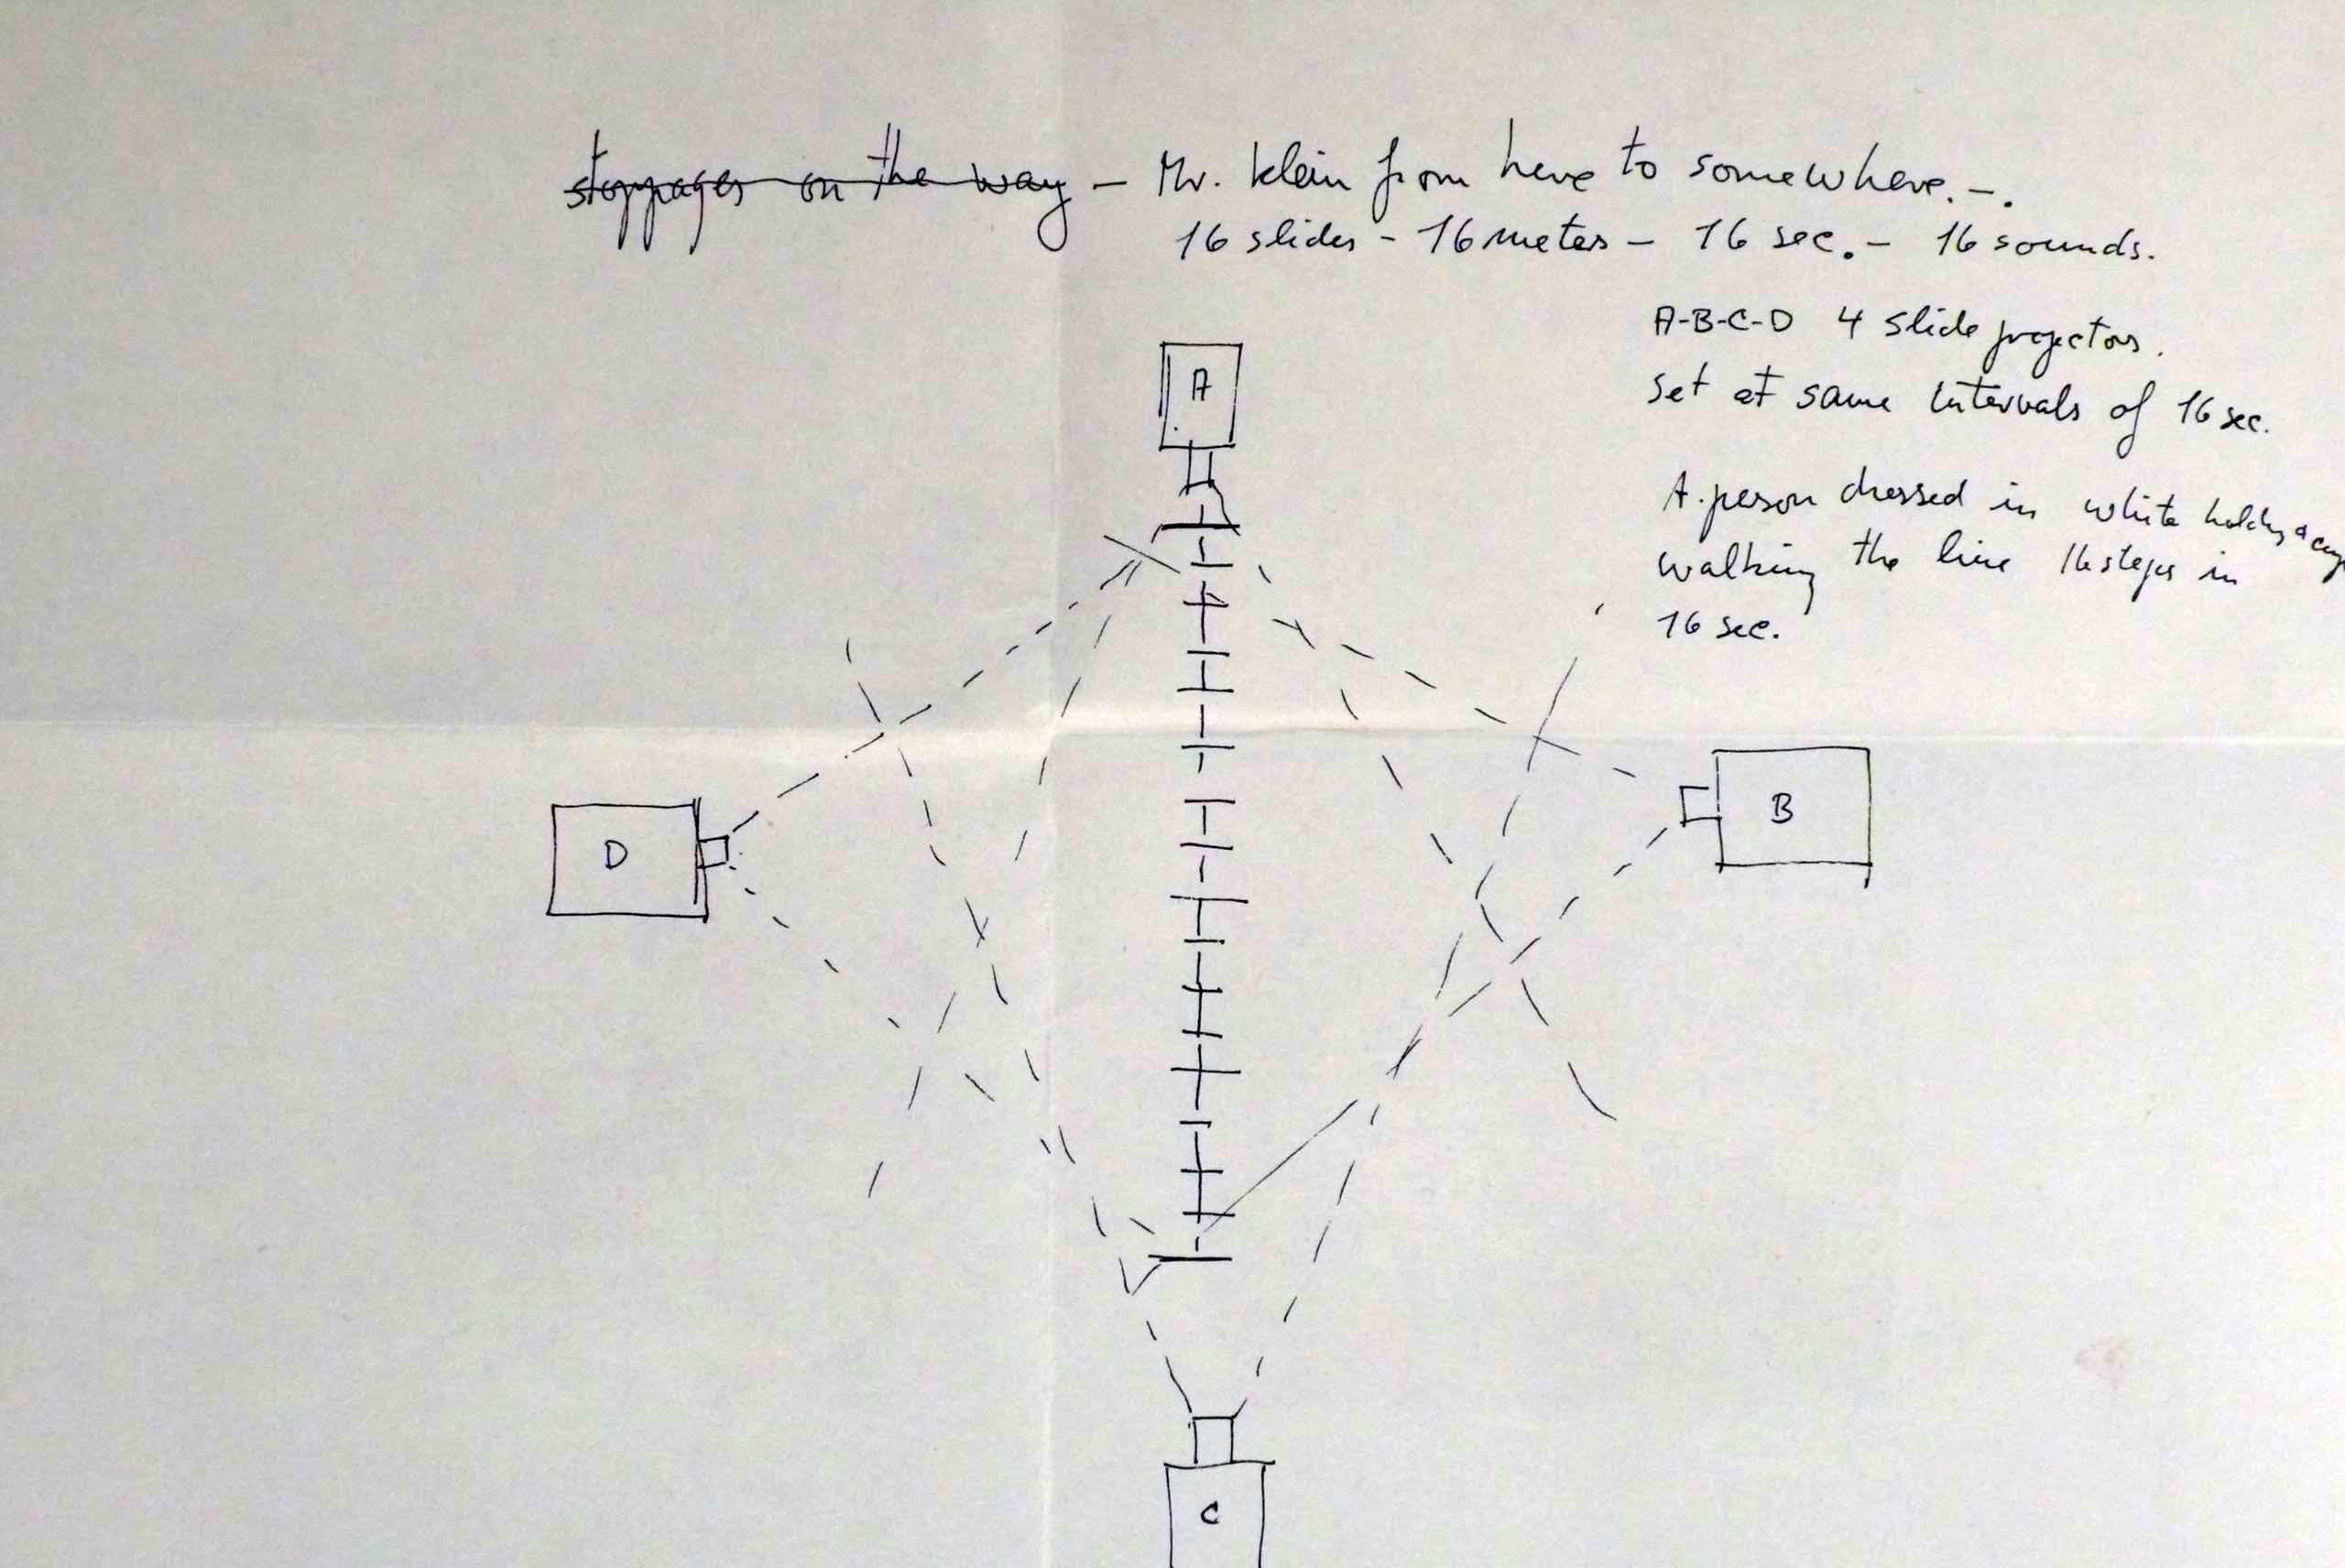 stoppages on the way – Mr. Klein from here to somewhere.–.
16 slides - 16 meters – 16 sec. – 16 sounds.
A-B-C-D 4 slide projectors.
set at same intervals of 16 sec.
A person dressed in white holding a
walking the line 16 steps in
16 sec.
A
D
B
C